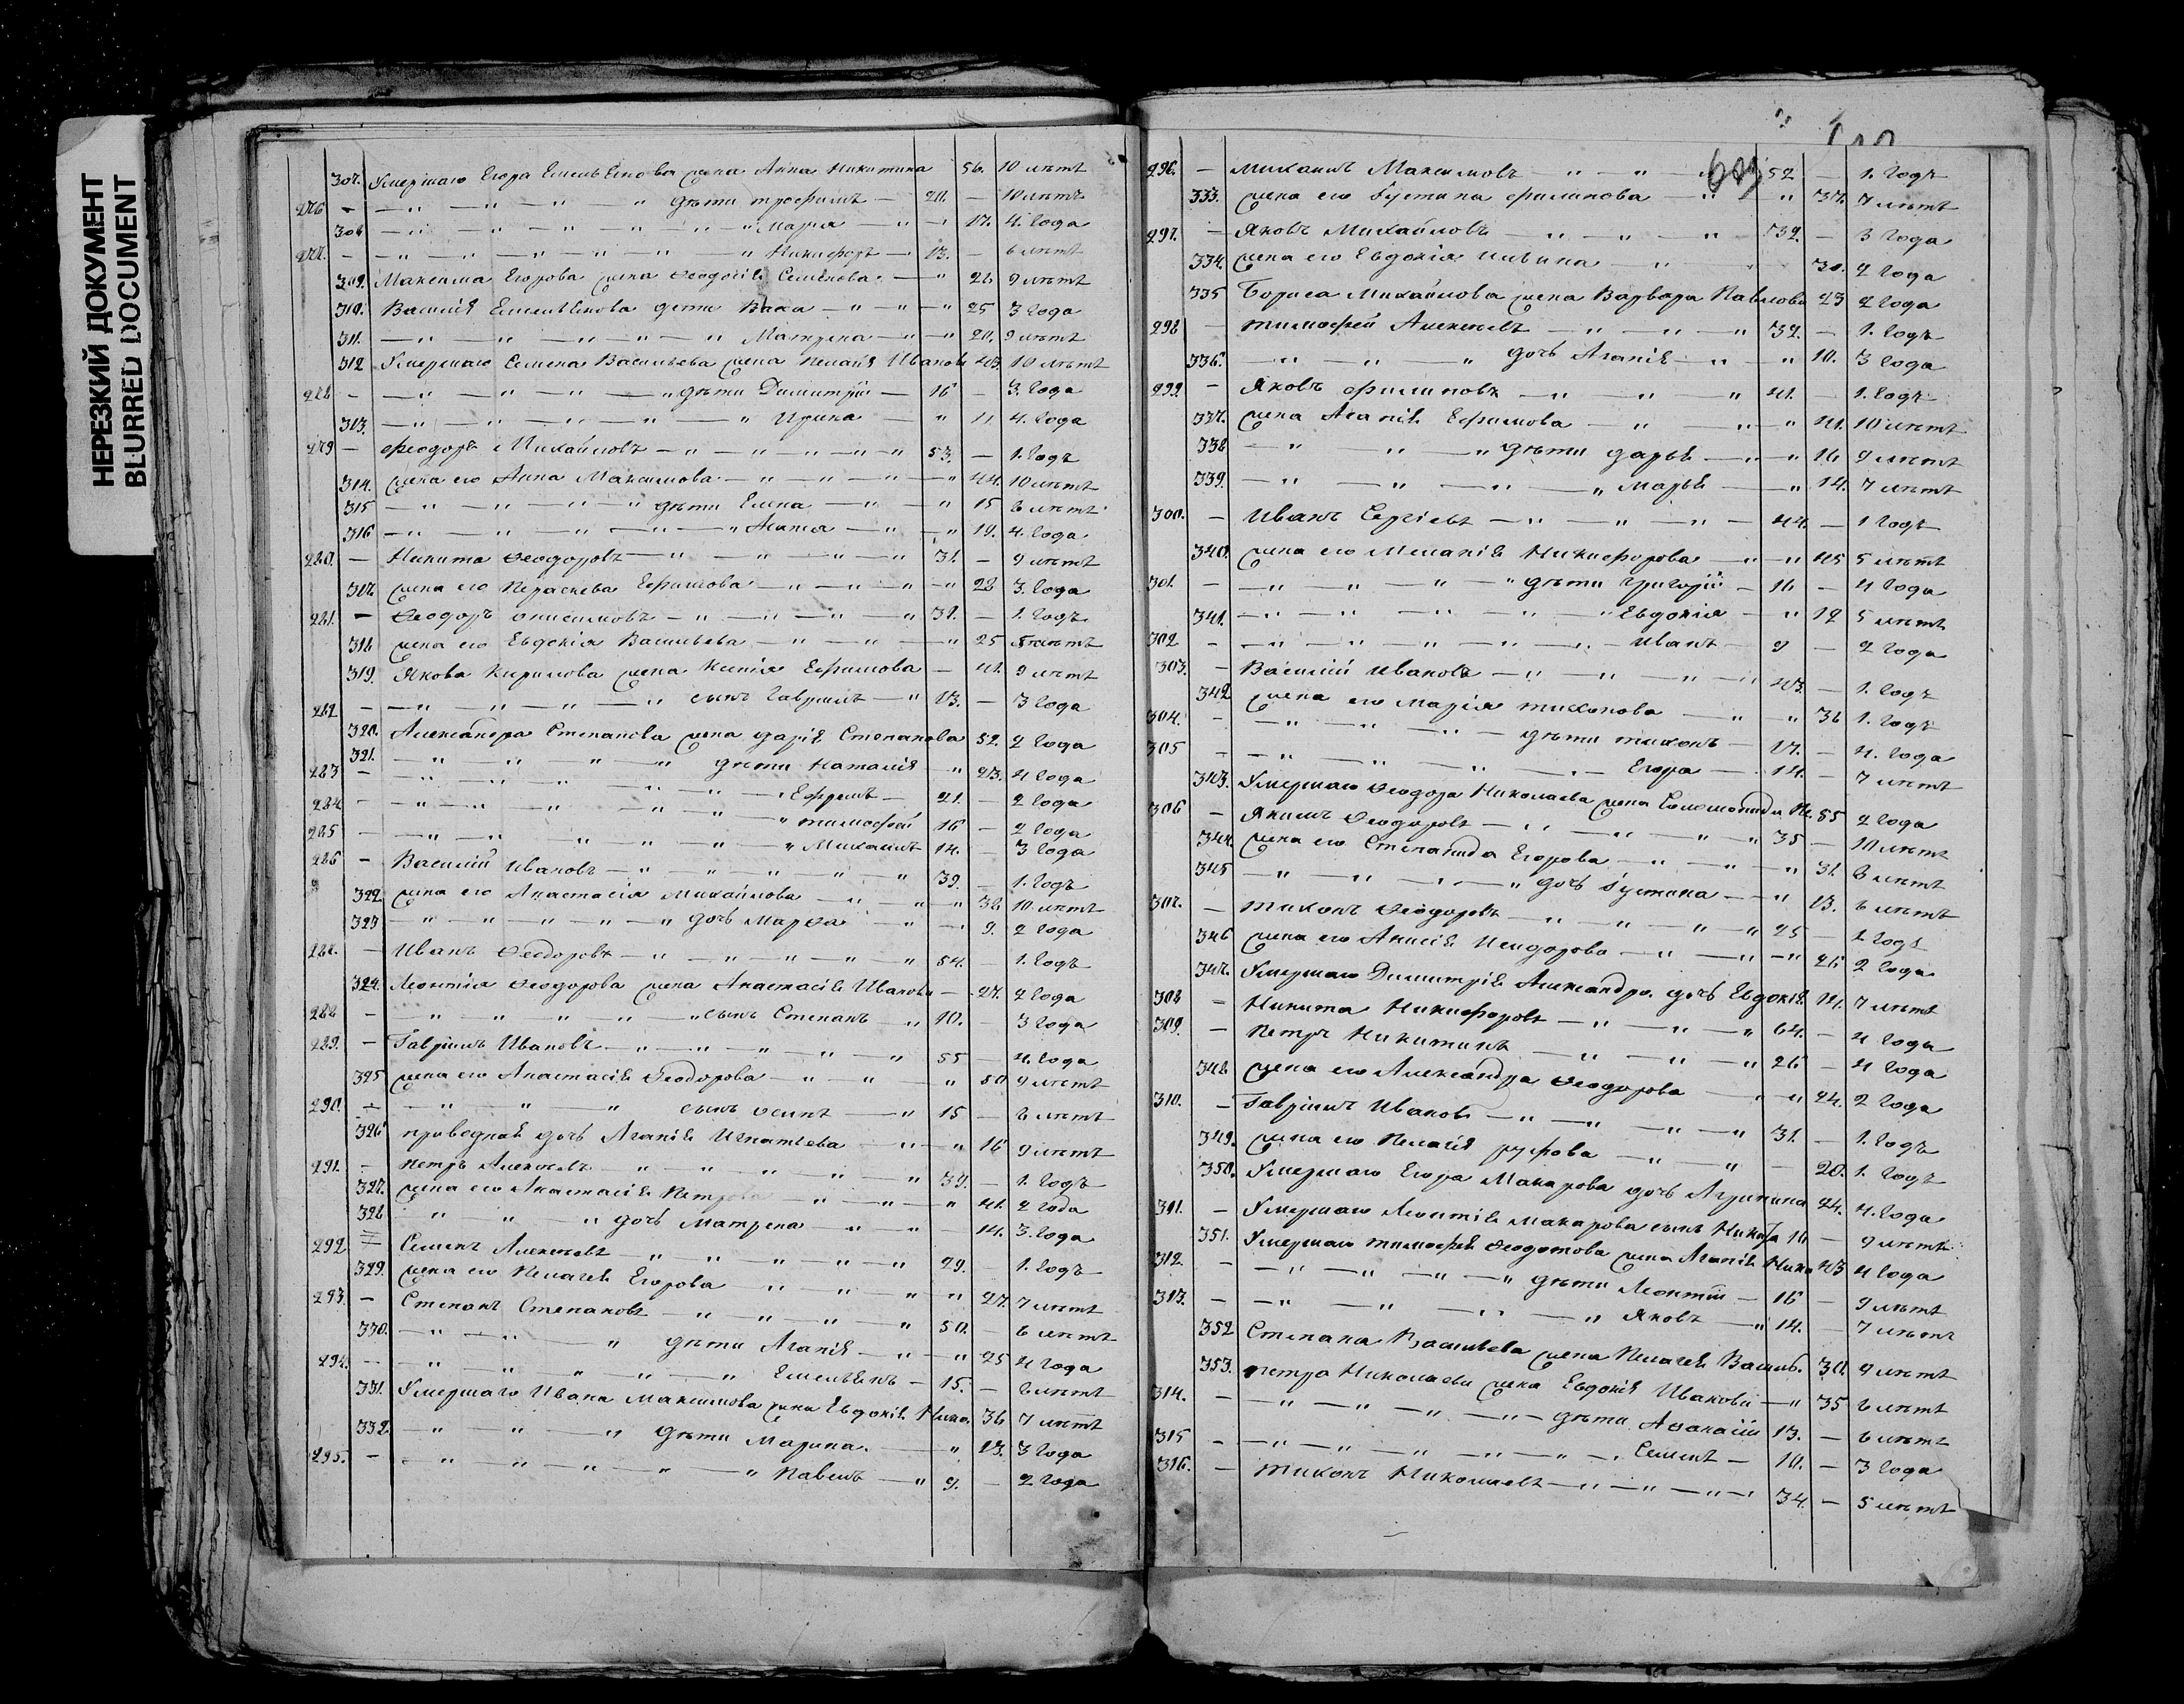 НЕРЕЗКИЙ ДОКУМЕНТ
BLURRED DOCUMENT
307. Умершаго Егора Емельянова жена Анна Никитина 56. 10 лѣтъ
276 — — " — " — " — " дѣти Трофимъ — 20. — 10 лѣтъ
308 — " — " — " — " — " Марья — " — 17. 4. года
277. — — " — " — " — " — " Никифоръ — 13. — 6 лѣтъ
309. Максима Егорова жена Ѳеодосія Семенова — " 26 9 лѣтъ
310. Василія Емельянова дети Васса — " — " — " 25 3 года
311. — " — " — " — " — " Матрена — " — " 20. 9 лѣтъ
312 Умершаго Семена Васильева жена Пелагія Иванов 43. 10 лѣтъ
278 — — " — " — " — " дѣти Димитрій — 16 — 3. года
313. — " — " — " — " — " Ирина — " 11 4. года
279 — Феодоръ Михайловъ — " — " — " — " — " 53. — 1. годъ
314. жена его Анна Максимова — " — " — " — " 44. 10 лѣтъ
315 — " — " — " — " дѣти Елена — " — " 15 6 лѣтъ
316 — " — " — " — " — " Агафья — " — " 19. 4. года
280. — Никита Ѳеодоровъ — " — " — " — " 31. — 9 лѣтъ
317 жена его Пераскева Ефимова — " — " — " — " 28 3. года
281. — Ѳеодоръ Онисимовъ — " — " — " — " 32. — 1. годъ
318 жена его Евдокія Васильева — " — " — " 25 5 лѣтъ
319. Якова Кирилова жена Ксенія Ефимова — 41. 9 лѣтъ
282. — — " — " — " — " сынъ Гаврилъ — " 13. — 3 года
320. Александра Степанова жена Дарія Степанова 52. 2 года
321. — " " " — " дѣти Наталія — " 23. 4 года
283 — — " — " — " — " — " — Ефремъ — 21. — 2 года
284 — — " — " — " — " — " — " Тимофей 16 — 2 года
285 — — " — " — " — " — " Михаилъ 14. — 3 года
286 — Василій Ивановъ — " — " — " — " — " 39. — 1. годъ
322 жена его Анастасія Михайлова — " — " — " 38 10. лѣтъ
323 — " — " — " — " — " дочь Марѳа — " — 9. 2 года
287. — Иванъ Ѳеодоровъ — " — " — " — " — " 54. 1. годъ
324. Леонтія Ѳеодорова жена Анастасія Иванова — 27. 2 года
288 — — " — " — " — " — " сынъ Степанъ — " 10. — 3 года
289. — Гаврилъ Ивановъ — " — " — " — " — " 55 — 4. года
325 жена его Анастасія Ѳеодорова — " — " — " 50 9 лѣтъ
290. — — " — " — " сынъ Осипъ — " 15 — 6 лѣтъ
326 приведная дочь Агапія Игнатьева — " — " 16 9 лѣтъ
291. — Петръ Алексеевъ — " — " — " — " — " 39. — 1. годъ
327. жена его Анастасія Петрова — " — " — " 41. 2 года
328 — " " — " дочь Матрена — " — " — 14. 3. года
292. — Семенъ Алексеевъ — " — " — " — " — " 29. — 1. годъ
329. жена его Пелагея Егорова — " — " — " 27. 7 лѣтъ
293. — Степанъ Степановъ — " — " — " — " — " 50. — 6 лѣтъ
330. — " — " — " дѣти Агапія — " — " 25 4 года
294. — — " — " — " — " — " Емельянъ — 15. — 6 лѣтъ
331. Умершаго Ивана Максимова жена Евдокія Нико. 36 7 лѣтъ
332. — " — " — " дѣти Марина — " 13. 3 года
295. — — " — " — " — " — " Павелъ — " 9. — 2 года
296. — Михаилъ Максимовъ — " — " — " 52 — 1. годъ
333. жена его Густина Филипова — " " 37. 7 лѣтъ
297. — Яковъ Михайловъ — " — " — " 32. — 3 года
334. жена его Евдокія — " — " 30. 2 года
335 Бориса Михайлова жена Варвара Павлова 23 2 года
298 — Тимофей Алексеевъ — " — " — " 32. — 1. годъ
336. — " — " — " дочь Агапія — " — " 10. 3 года
299. — Яковъ Филиповъ — " — " — " 41. — 1. годъ
337. жена Агапія Ефимова — " — " — " 41. 10 лѣтъ
338 — " " — " дѣти Дарья — " — " 16 9 лѣтъ
339. — " — " — " — " Марья — " 14. 7 лѣтъ
300. — Иванъ Сергѣевъ — " — " — " — 44. — 1 годъ
340. жена его Меланія Никифорова — " — " 45 5 лѣтъ
301. — — " — " — " — " дѣти Григорій — 16. — 4 года
341. — " — " — " — " — " Евдокія — " 12 5 лѣтъ
302 — — " — " — " — " — " — Иванъ — 9 — 2 года
303. — Василій Ивановъ — " — " — " — " 43. — 1. годъ
342 жена его Марія Тихонова — " — " 36 1. годъ
304. — — " — " — " — дѣти Тихонъ — 17. — 4. года
305 — — " — " — " — " — Егоръ — 14. — 7 лѣтъ
343. Умершаго Ѳеодора Николаева жена Соломонида 55 2 года
306 — Якимъ Ѳеодоровъ — " — " — " — " 35 — 10 лѣтъ
344. жена его Степанида Егорова — " — " — " 31. 6 лѣтъ
345 — " — " — " — " дочь Густина — " 13. 6 лѣтъ
307. — Тихонъ Ѳеодоровъ — " — " — " — " 25 — 1 годъ
346 жена его Анисія — " — " — " 26 2 года
347. Умершаго Димитрія Александро. дочь Евдокія 14. 7 лѣтъ
308 — Никита Никифоровъ — " — " — " 64. — 4 года
309. — Петръ Никитинъ — " — " — " 26 — 4 года
348 жена его Александра Ѳеодорова — " — " 24. 2 года
310. — Гаврилъ Ивановъ — " — " — " — " 31. — 1. годъ
349. жена его Пелагія Руфова — " — " — 20. 1. годъ
350. Умершаго Егора Макарова дочь 24. 4. года
311. — Умершаго Леонтія Макарова сынъ 16 — 9 лѣтъ
351. Умершаго Тимофея Ѳеодотова жена Агапія Нико 43 4 года
312 — — " — " — " — " дѣти Леонтій — 16 — 9 лѣтъ
313. — — " — " — " — " Яковъ — " 14. — 7 лѣтъ
352 Степана Васильева жена Пелагея Василь. 30. 9 лѣтъ
353. Петра Николаева жена Евдокія Иванова — " 35 6 лѣтъ
314. — — " — " — " — " — дѣти Аѳанасій 13. — 6 лѣтъ
315 — — " — " — " — " — " Семенъ — 10. — 3 года
316. — Тихонъ Николаевъ — " — " — " — " 34. — 5 лѣтъ